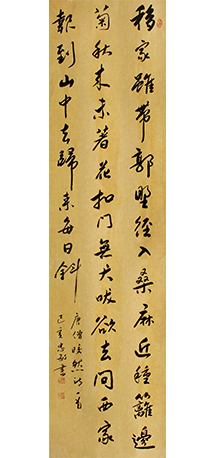 移家雖帶郭野徑入桑麻近種籬邊
菊秋來未著花扣门無犬吠欲去问西家
報到山中去歸来每日斜
唐僧皎然诗一首
己亥忠敏書